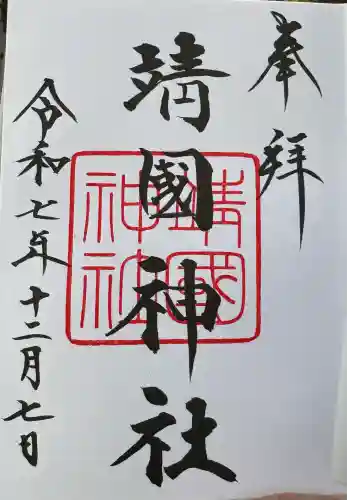 奉拝
靖國神社
靖國神社
令和七年十二月七日